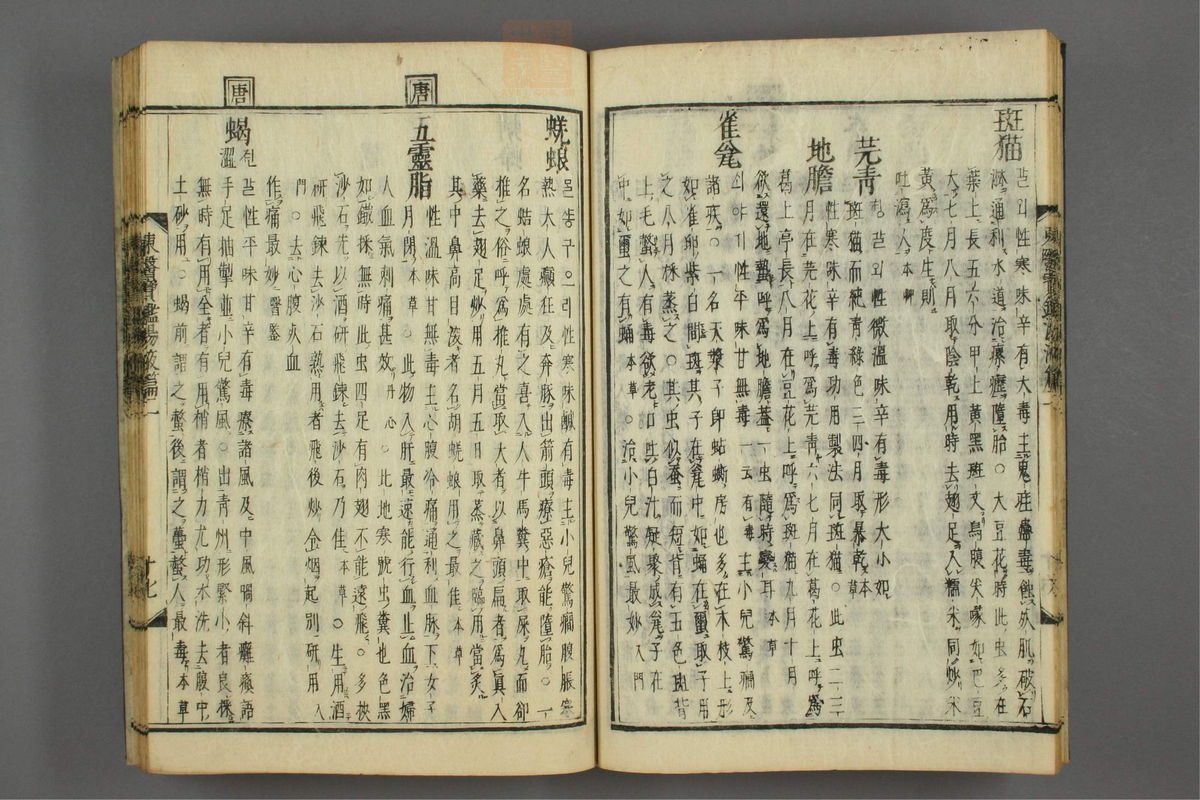 斑猫
갈외性寒味辛有大毒主鬼疰蠱毒蝕死肌破石
淋通利水道治瘰癧墮胎○大豆花時此虫多在
葉上長五六分甲上黃黑斑文烏腹尖喙如巴豆
大七月八月取陰乾用時去翅足入糯米同炒米
黃爲度生則
吐瀉人本草
芫靑
갈외性微溫味辛有毒形大小如
斑猫而純靑綠色三四月取暴乾本草
地膽
性寒味辛有毒功用製法同斑猫○此虫二三
月如在芫花上呼爲芫靑六七月在葛花上呼爲
葛上亭長八月在豆花上呼爲斑猫九月十月
欲還地蟄呼爲地膽蓋一虫隨時變耳本草
雀瓮
性平味甘無毒一云有毒主小兒驚癎及
諸疾○一名天漿子卽蛅蟖房也多在木枝上形
如雀卵紫白間斑其子在瓮中如蛹在蠒取子用
之八月採蒸之○其虫似蚕而短背有五色斑
上毛螫人有毒欲老口吐白汁凝聚成瓮子在
中如蠒之有蛹本草○治小兒驚風最妙入門
蜣蜋
性寒味鹹有毒主小兒驚癎腹脹寒
熱大人癲狂及奔豚出箭頭療惡瘡能墮胎○一
名蛣蜋處處有之喜入人牛馬糞中取屎丸而却
推之俗呼爲推丸當取大者以鼻頭扁者爲眞入
藥去翅足炒用五月五日取蒸藏之臨用當炙
其中鼻高目深者名胡蜣蜋用之最佳本草
唐
五靈脂
性溫味甘無毒主心腹冷痛通利血脉下女子
月閉本草○此物入肝最速能行血止血治婦
人血氣刺痛甚效丹心○此地寒號虫糞也色黑
如鐵採無時此虫四足有肉翅不能遠飛○多挾
沙石先以酒研飛鍊去沙石乃佳本草○生用酒
研飛鍊去沙石熟用者飛後炒令烟起別研用入
門○去心腹死血
作痛最妙醫鑒
唐
蝎
澀
전갈性平味甘辛有毒療諸風及中風喎斜癱瘓語
手足抽掣並小兒驚風○出靑州形緊小者良採
無時有用全者有用梢者梢力尤功水洗去腹中
土砂用○蝎前謂之螫後謂之蠆螫人最毒本草
東醫寶鑑湯液篇二
十七